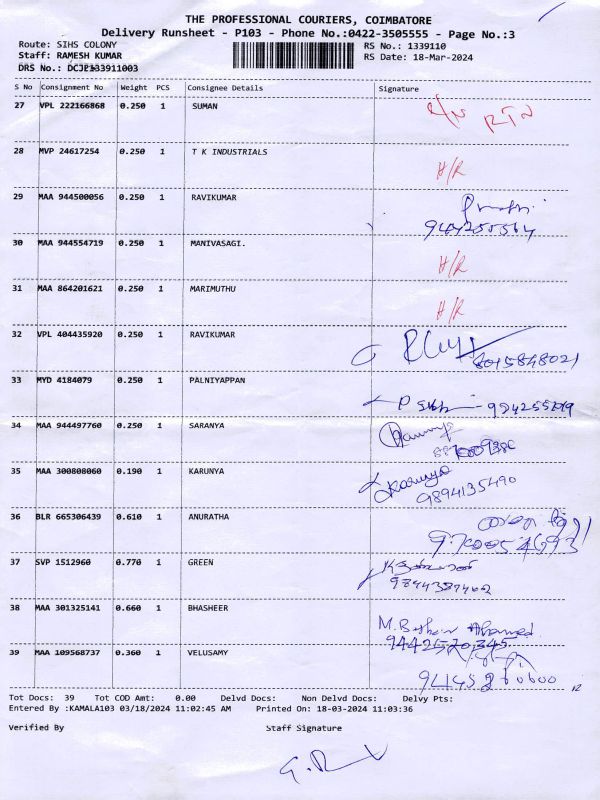 THE PROFESSIONAL COURIERS, COIMBATORE
Delivery Runsheet - P103 - Phone No.:0422-3505555 - Page No.:3
Route: SIHS COLONY RS No.: 1339110
Staff: RAMESH KUMAR RS Date: 18-Mar-2024
DRS No.: DCJE133911003
S No Consignment No Weight PCS Consignee Details Signature
27 VPL 222166868 0.250 1 SUMAN R/N RTN
28 MVP 24617254 0.250 1 T K INDUSTRIALS H/R
29 MAA 944500056 0.250 1 RAVIKUMAR
30 MAA 944554719 0.250 1 MANIVASAGI. H/R
31 MAA 864201621 0.250 1 MARIMUTHU H/R
32 VPL 404435920 0.250 1 RAVIKUMAR 8015848021
33 MYD 4184079 0.250 1 PALNIYAPPAN
34 MAA 944497760 0.250 1 SARANYA
35 MAA 300808060 0.190 1 KARUNYA Karunya
9894135490
36 BLR 665306439 0.610 1 ANURATHA
37 SVP 1512960 0.770 1 GREEN
38 MAA 301325141 0.660 1 BHASHEER
9442520345
39 MAA 109568737 0.360 1 VELUSAMY
12
Tot Docs: 39 Tot COD Amt: 0.00 Delvd Docs: Non Delvd Docs: Delvy Pts:
Entered By :KAMALA103 03/18/2024 11:02:45 AM Printed On: 18-03-2024 11:03:36
Verified By Staff Signature